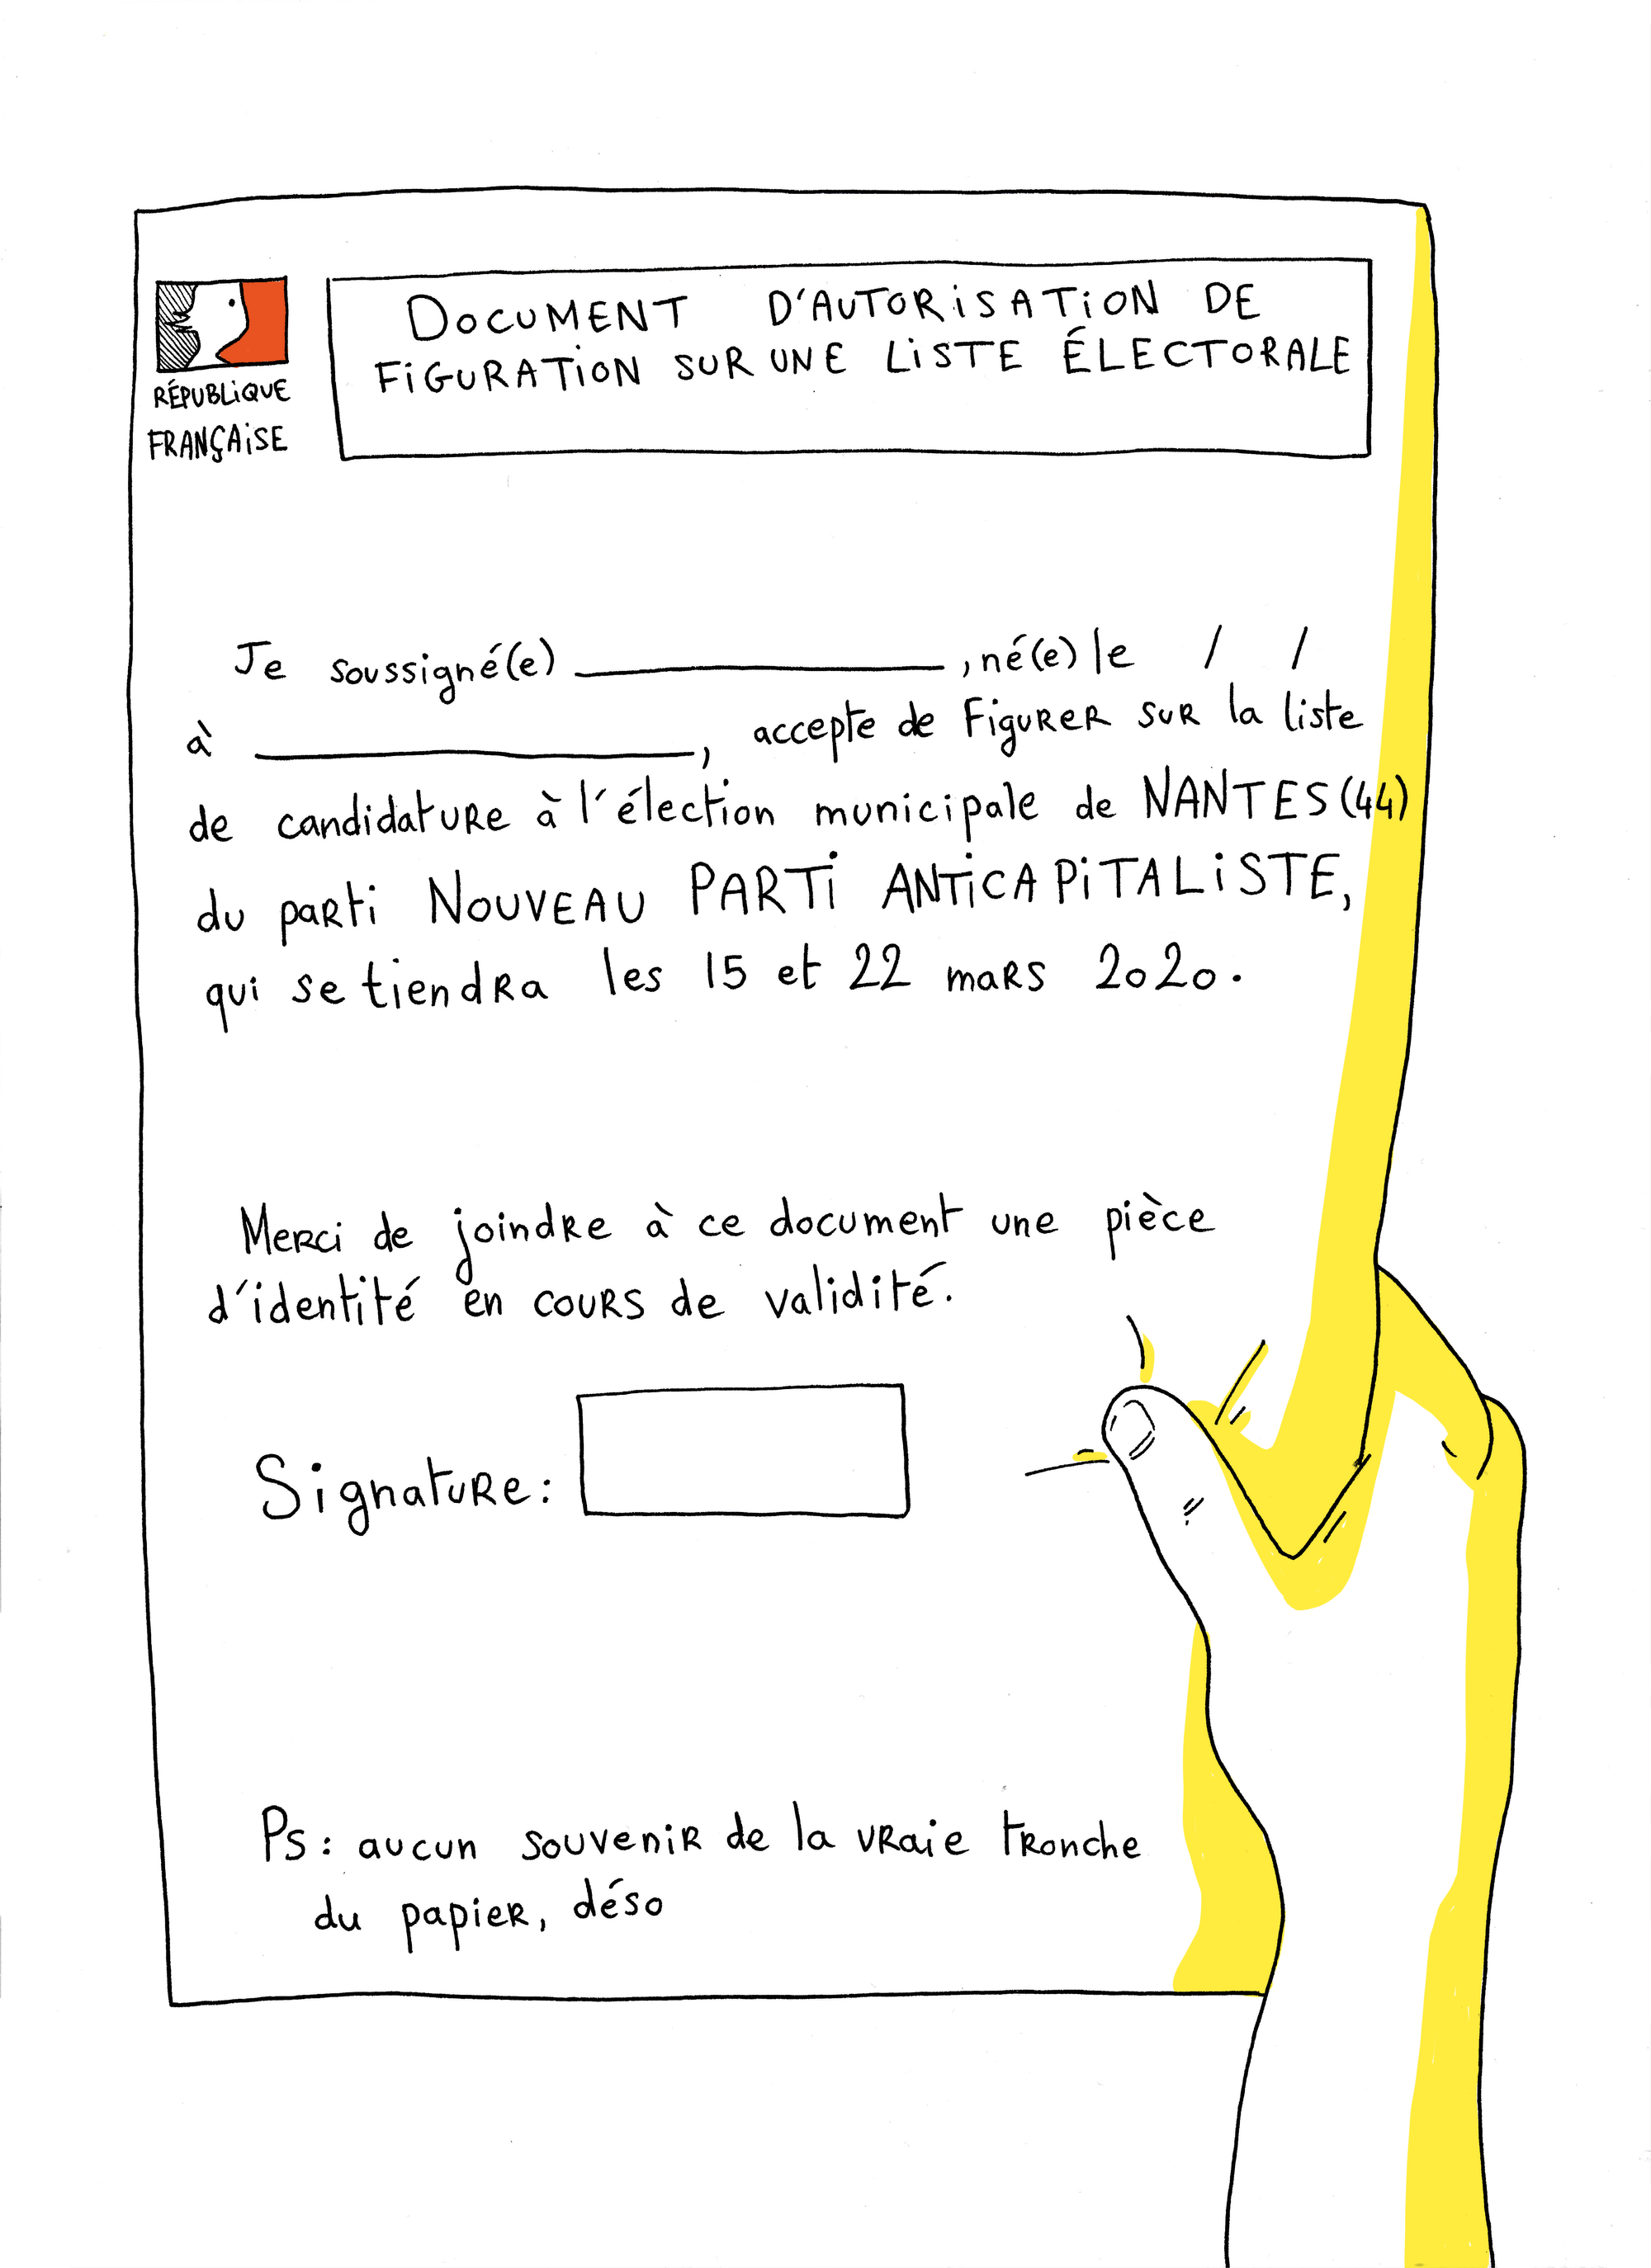 RÉPUBLIQUE
FRANÇAISE
DOCUMENT D'AUTORISATION DE
FIGURATION SUR UNE LISTE ÉLECTORALE
Je soussigné(e) ____________, né(e) le / /
à ______________, accepte de figurer sur la liste
de candidature à l'élection municipale de NANTES (44)
du parti NOUVEAU PARTI ANTICAPITALISTE,
qui se tiendra les 15 et 22 mars 2020.
Merci de joindre à ce document une pièce
d'identité en cours de validité.
Signature :
Ps : aucun souvenir de la vraie tronche
du papier, déso